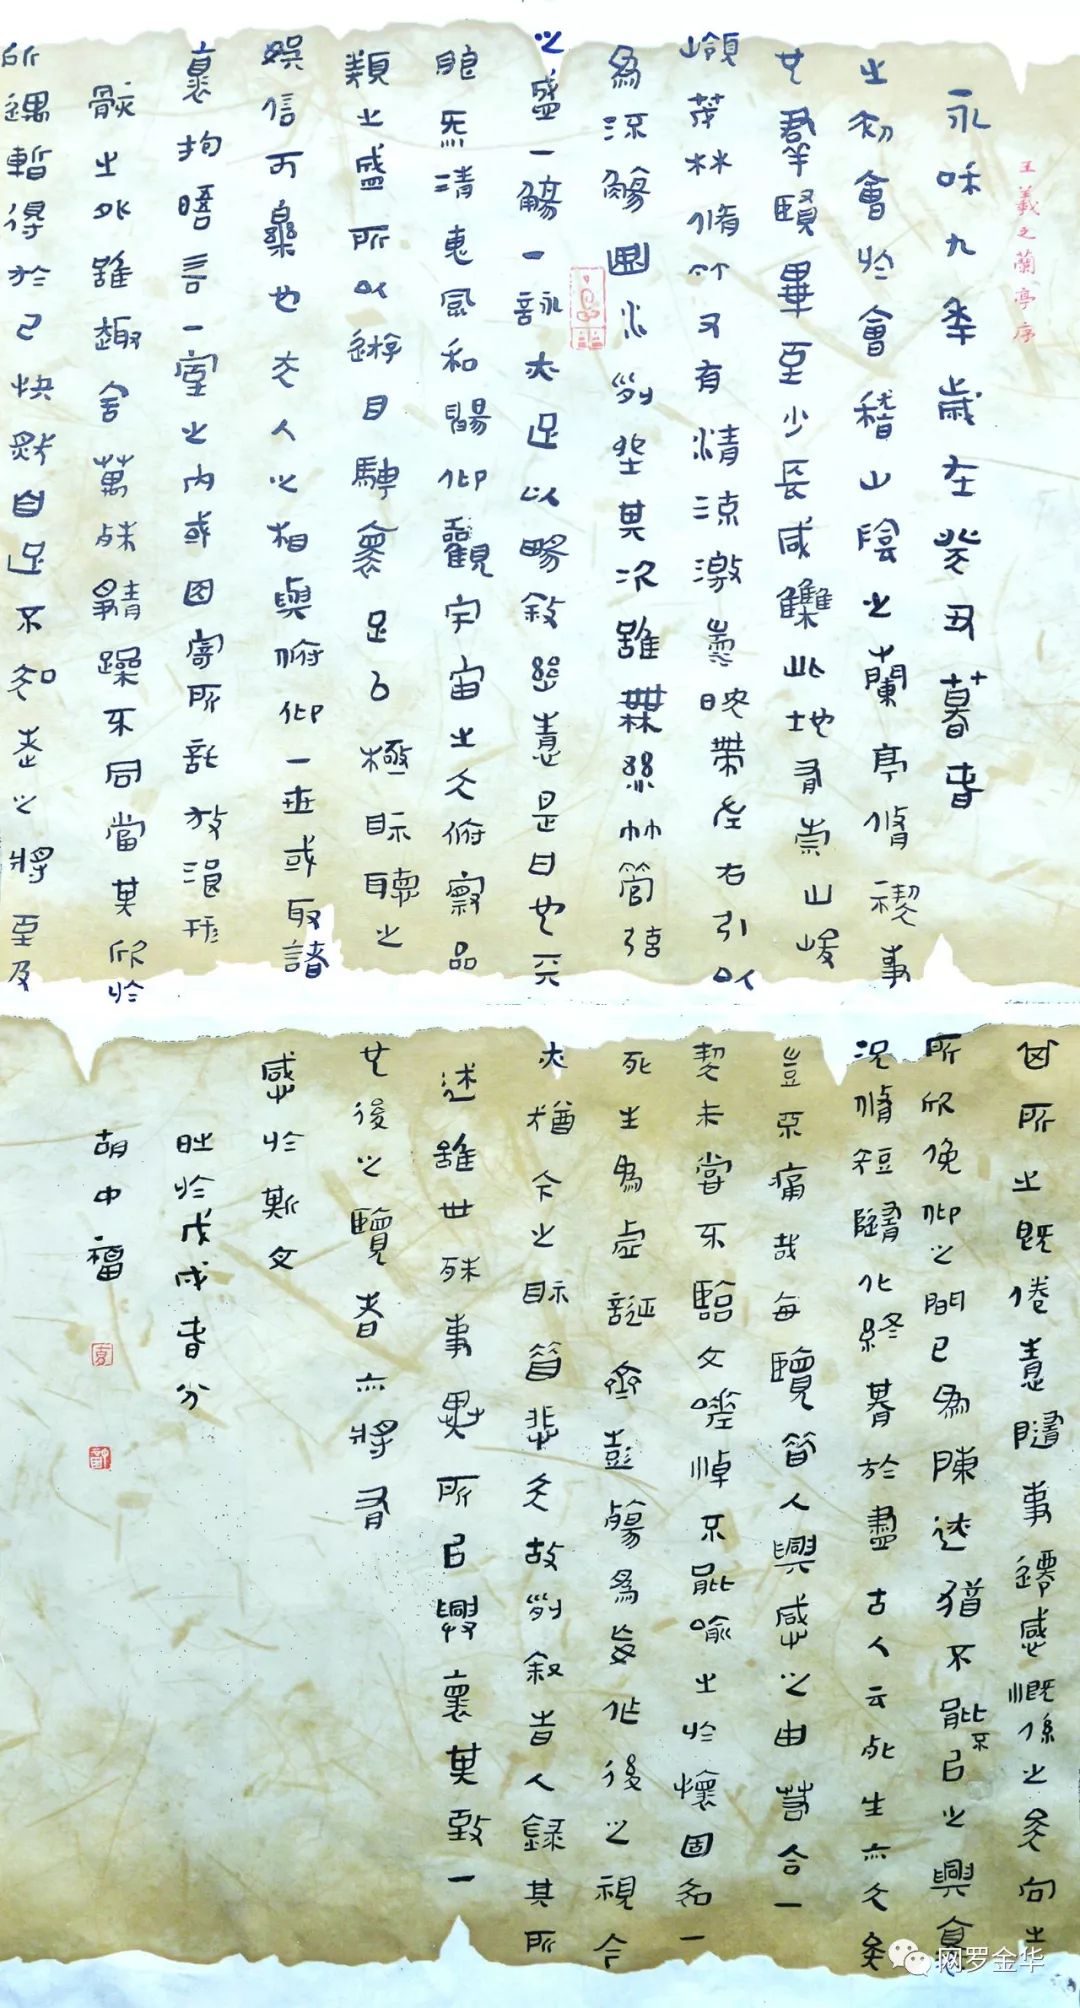 王羲之蘭亭序
永和九年歲在癸丑暮春
之初會於會稽山陰之蘭亭脩禊事
也羣賢畢至少長咸集此地有崇山峻
嶺茂林脩竹又有清流激湍映帶左右引以
為流觴曲水列坐其次雖無絲竹管弦
之盛一觴一詠亦足以暢敘幽情是日也天
朗炁清惠風和暢仰觀宇宙之大俯察品
類之盛所以遊目騁懷足以極眎聽之
娛信可樂也夫人之相與俯仰一世或取諸
懷抱晤言一室之內或因寄所託放浪形
骸之外雖趣舍萬殊靜躁不同當其欣於
所遇暫得於己快然自足不知老之將至及
其所之既倦情隨事遷感慨係之矣向之
所欣俛仰之間已為陳迹猶不能不以之興懷
況脩短隨化終期於盡古人云死生亦大矣
豈不痛哉每覽昔人興感之由若合一
契未嘗不臨文嗟悼不能喻之於懷固知一
死生為虛誕齊彭殤為妄作後之視今
亦猶今之眎昔悲夫故列敘時人錄其所
述雖世殊事異所以興懷其致一
也後之覽者亦將有
感於斯文
時於戊戌春分
胡中福
网罗金华